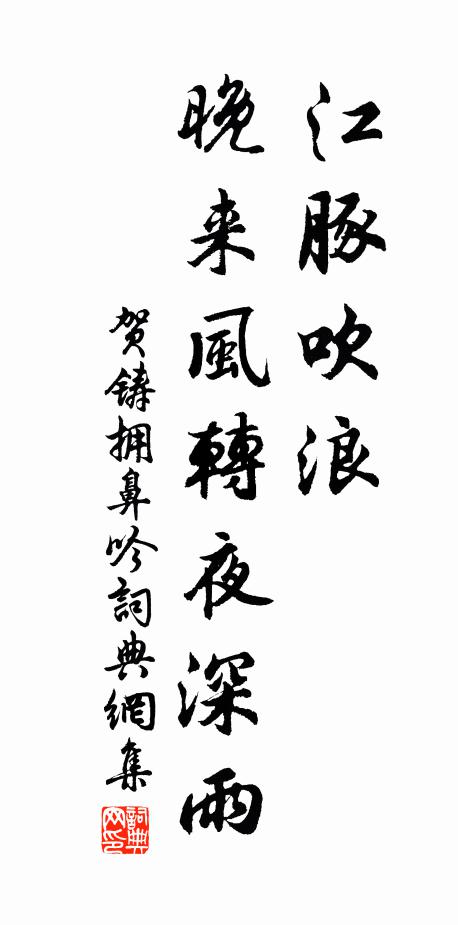 江豚吹浪
晚来風轉夜深雨
贺鑄拥鼻吟詞典網集
詞典
网印